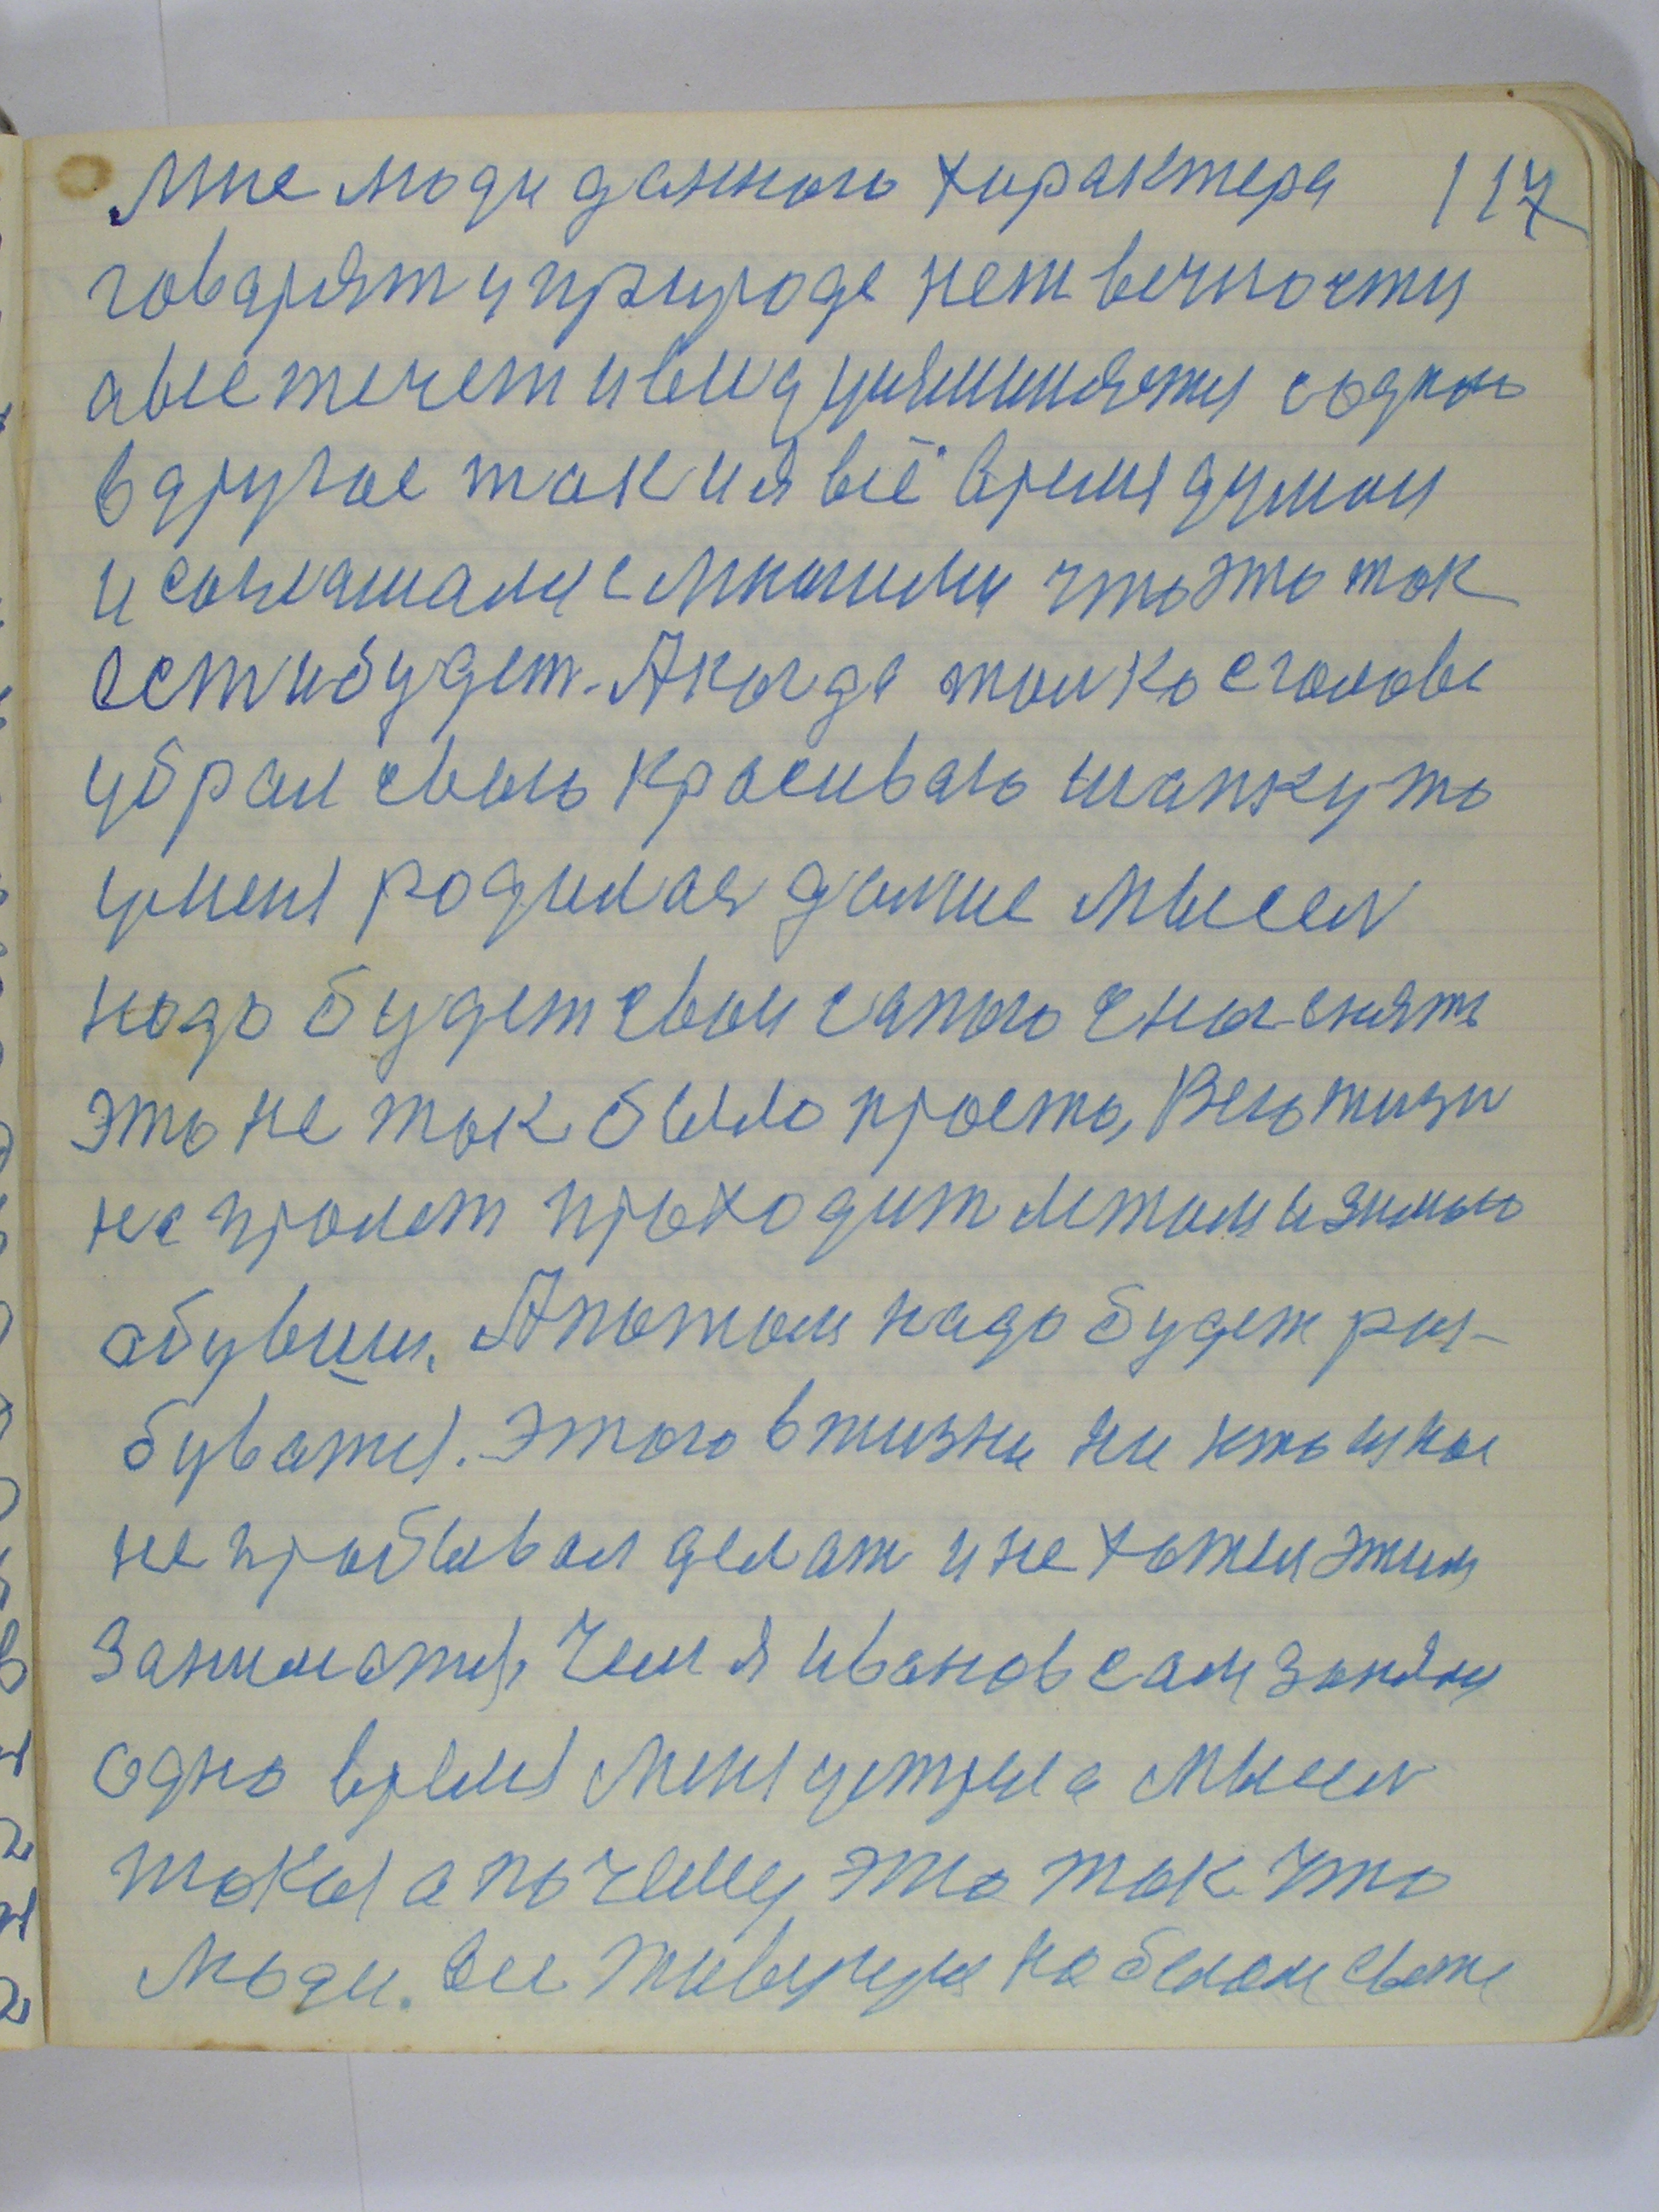 Мне люди данного характера 117
говарят у природе нет вечности
а все течет и вли д
в другое так и я всё время думал
и соглашался с многими что это так
ест и будет. А когда толко с головы
убрал свою красиваю шапку то
у меня родилася далше мысел
надо будет свои сапоги с ног снять
это не так было просто, Всю жизн
человек проходит летом и зимою
обувши. А потом надо будет раз-
буватся. Этого в жизни ни кто ни ког
не пробывал делат и не хотел этим
заниматся, Чем я Иванов сам занялся
одно время меня устрела мысел
такая а почему это так что
люди. все живущия на белом свете